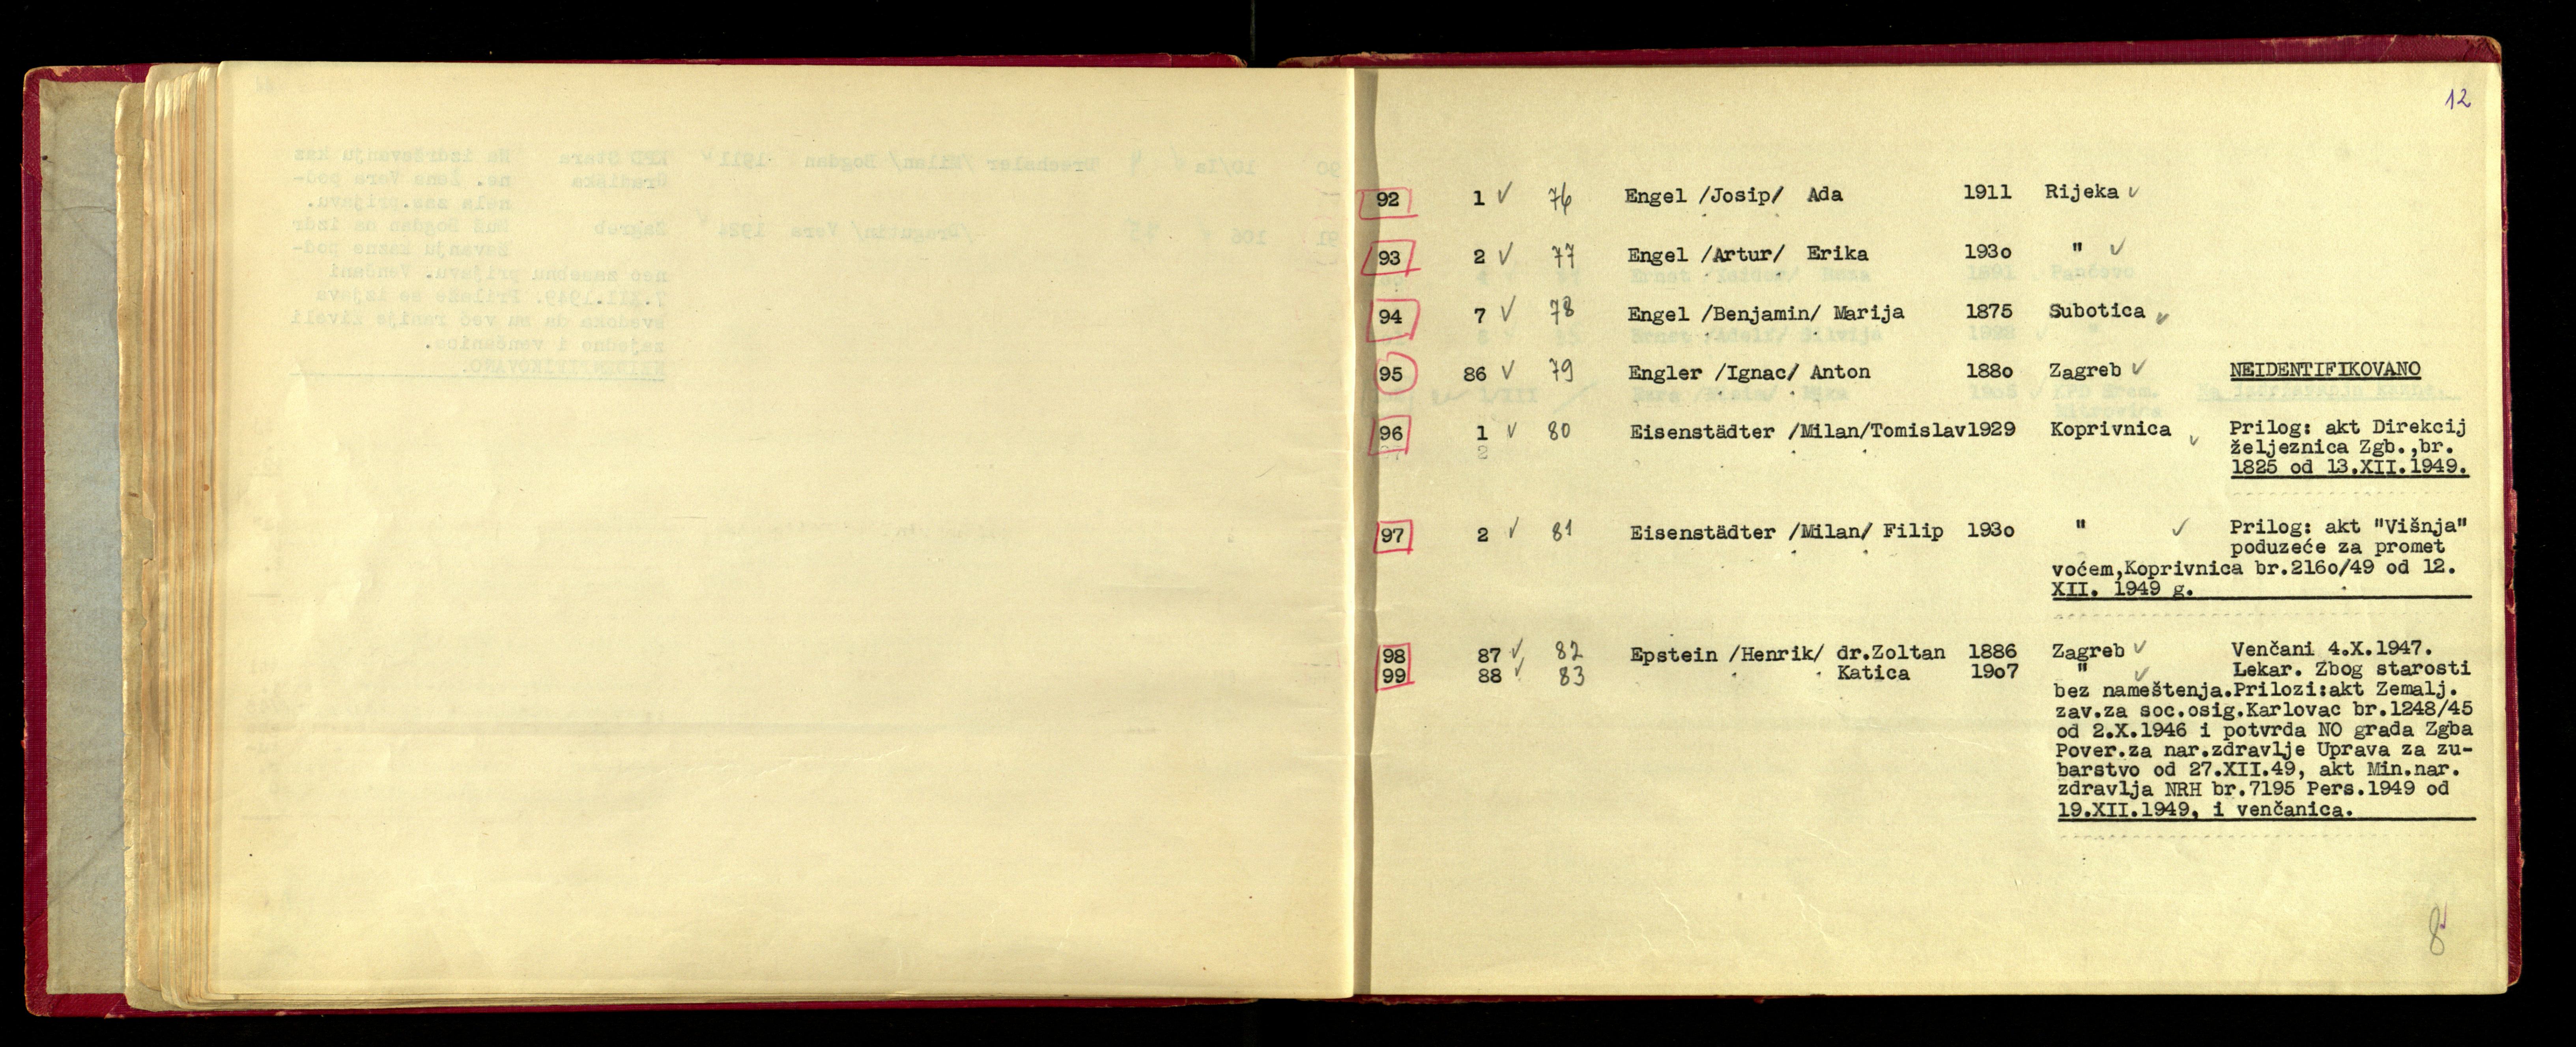 12
92 1 ✓ 76 Engel /Josip/ Ada 1911 Rijeka ✓
93 2 ✓ 77 Engel /Artur/ Erika 193o " ✓
94 7 ✓ 78 Engel /Benjamin/ Marija 1875 Subotica ✓
95 86 ✓ 79 Engler /Ignac/ Anton 188o Zagreb ✓ NEIDENTIFIKOVANO
96 1 ✓ 80 Eisenstädter /Milan/Tomislav1929 Koprivnica ✓ Prilog: akt Direkcij
2 željeznica Zgb.,br.
1825 od 13.XII.1949.
97 2 ✓ 81 Eisenstädter /Milan/ Filip 193o " ✓ Prilog: akt "Višnja"
poduzeće za promet
voćem,Koprivnica br.216o/49 od 12.
XII. 1949 g.
98 87 ✓ 82 Epstein /Henrik/ dr.Zoltan 1886 Zagreb ✓ Venčani 4.X.1947.
99 88 ✓ 83 Katica 19o7 " ✓ Lekar. Zbog starosti
bez nameštenja.Prilozi:akt Zemalj.
zav.za soc.osig.Karlovac br.1248/45
od 2.X.1946 i potvrda NO grada Zgba
Pover.za nar.zdravlje Uprava za zu-
barstvo od 27.XII.49, akt Min.nar.
zdravlja NRH br.7195 Pers.1949 od
19.XII.1949, i venčanica.
8